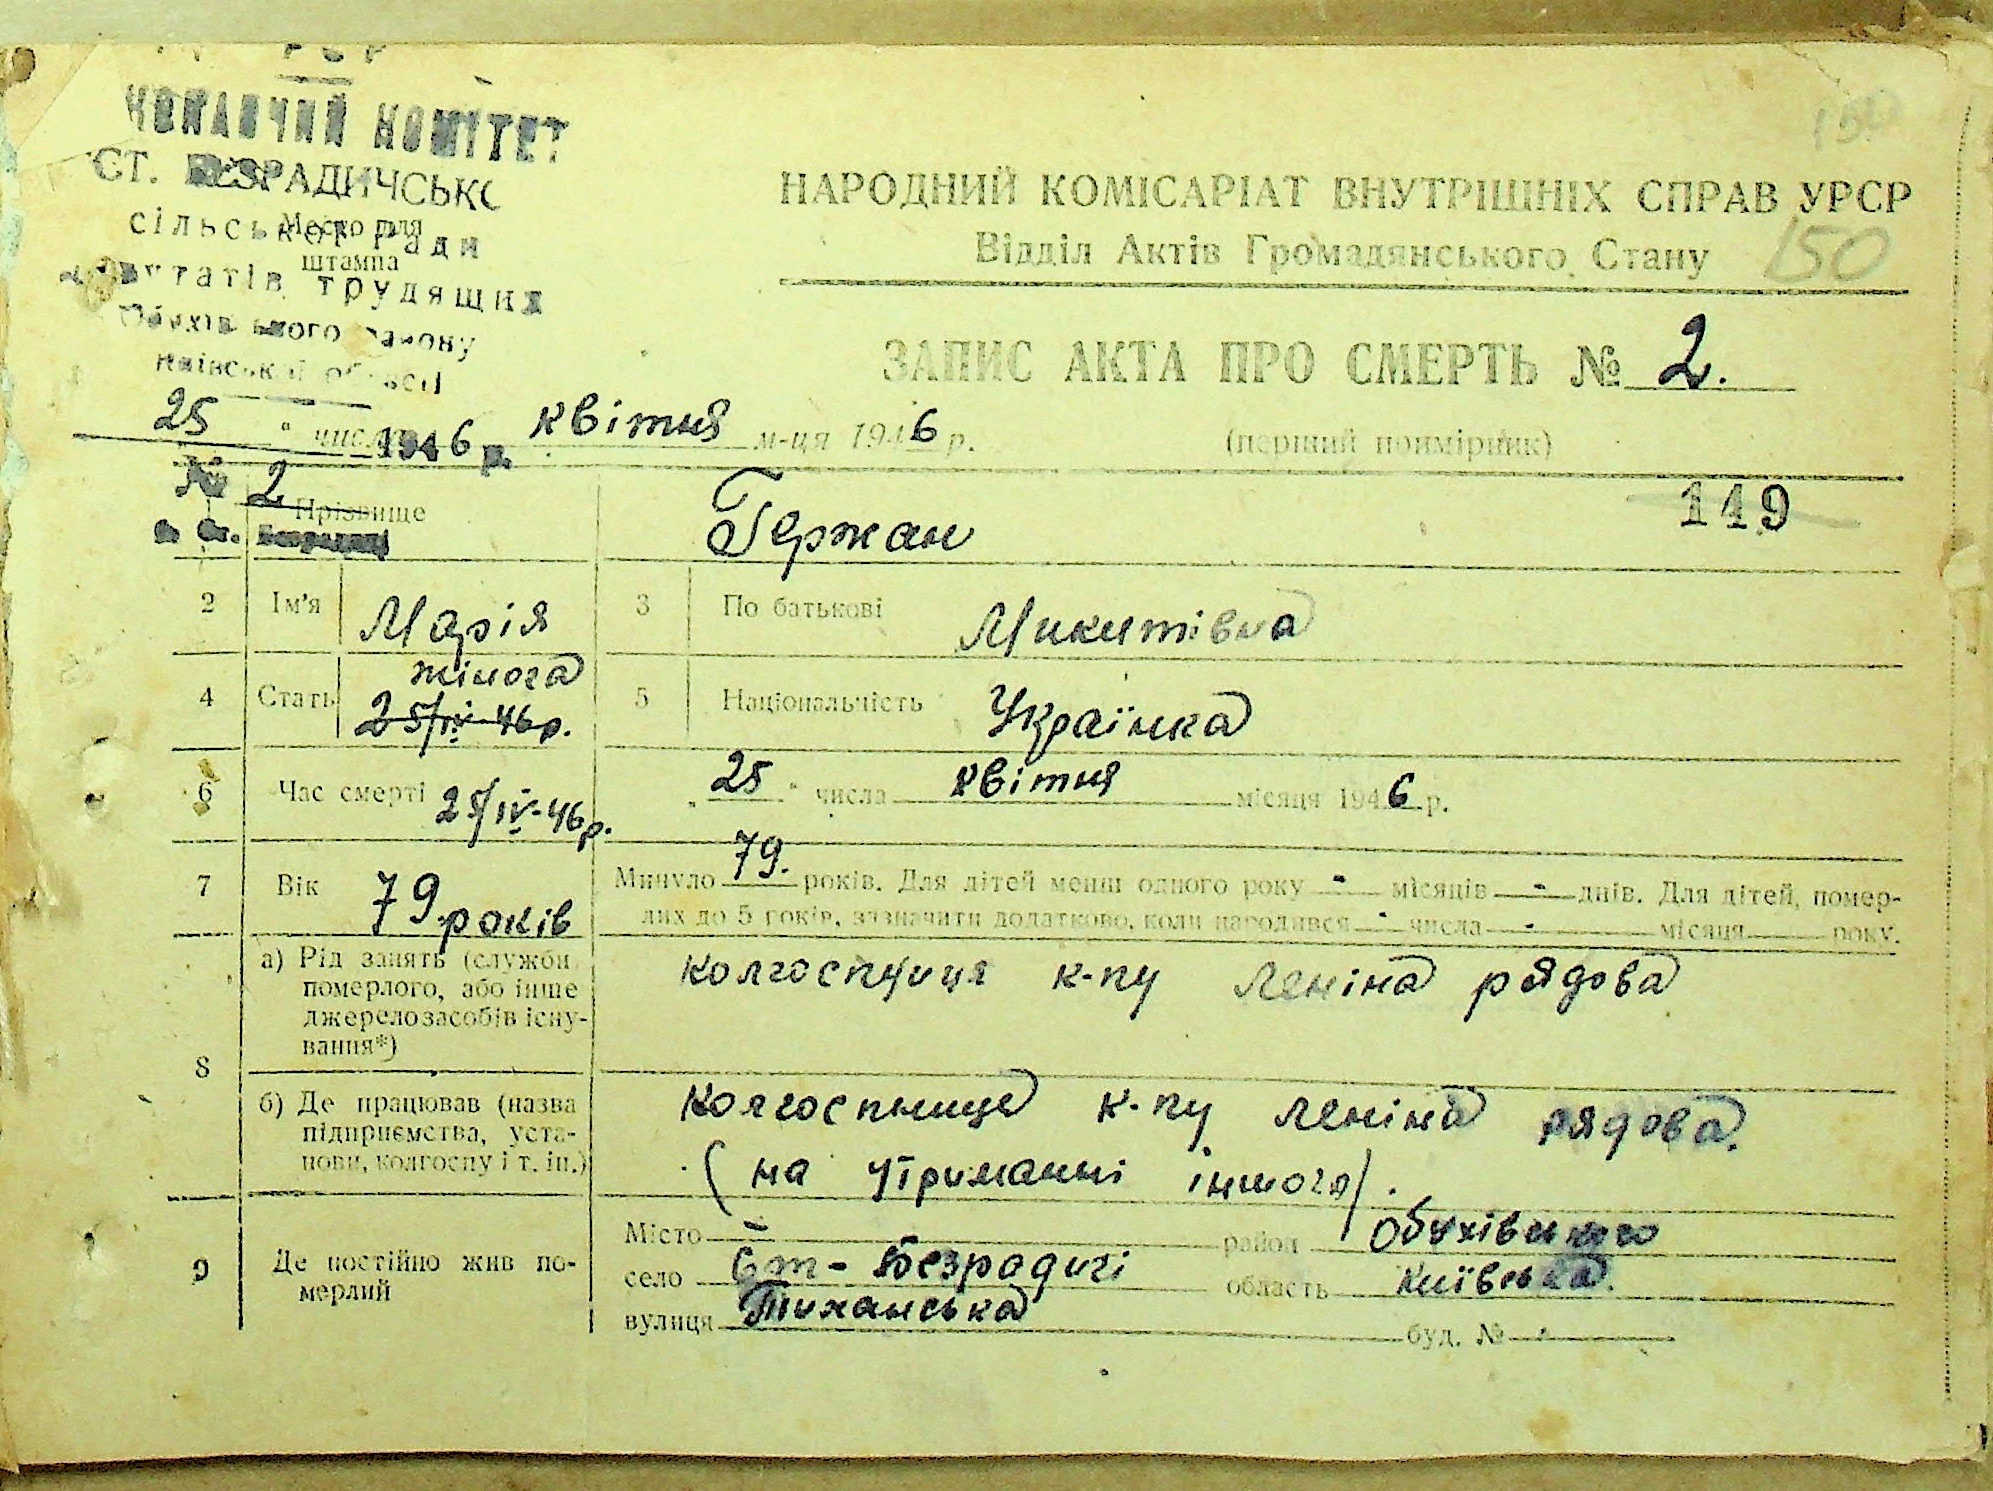 РСР
ЧОНАВЧИЙ КОМІТЕТ
СТ. БЕЗРАДИЧСЬКО
сільської ради
Место для
штампа
депутатів трудящих
Обухівського району
Київської області
150
НАРОДНИЙ КОМІСАРІАТ ВНУТРІШНІХ СПРАВ УРСР
Відділ Актів Громадянського Стану 150
ЗАПИС АКТА ПРО СМЕРТЬ № 2.
25 " числа 1946 р. квітня м-ця 1946 р. (перший примірник)
№ 2
149
Прізвище Гержан
в Ст. Безрадичі
2 Ім'я Марія 3 По батькові Микитівна
4 Стать жіноча 5 Національність Українка
25/IV-46р.
6 Час смерті 25/IV-46р. „ 25 " числа квітня місяця 1946 р.
7 Вік 79 років Минуло 79. років. Для дітей менш одного року - місяців - днів. Для дітей, помер-
лих до 5 років, зазначити додатково, коли народився - числа - місяця року.
8 а) Рід занять (служби
померлого, або інше
джерело засобів існу-
вання*)
колгоспниця к-пу Леніна рядова
б) Де працював (назва
підприємства, уста-
нови, колгоспу і т. ін.)
колгоспниця к-пу Леніна рядова.
(на утриманні іншого).
9 Де постійно жив по-
мерлий
Місто — район Обухівського
село Ст-Безрадичі область Київська.
вулиця Тиханська буд. № -